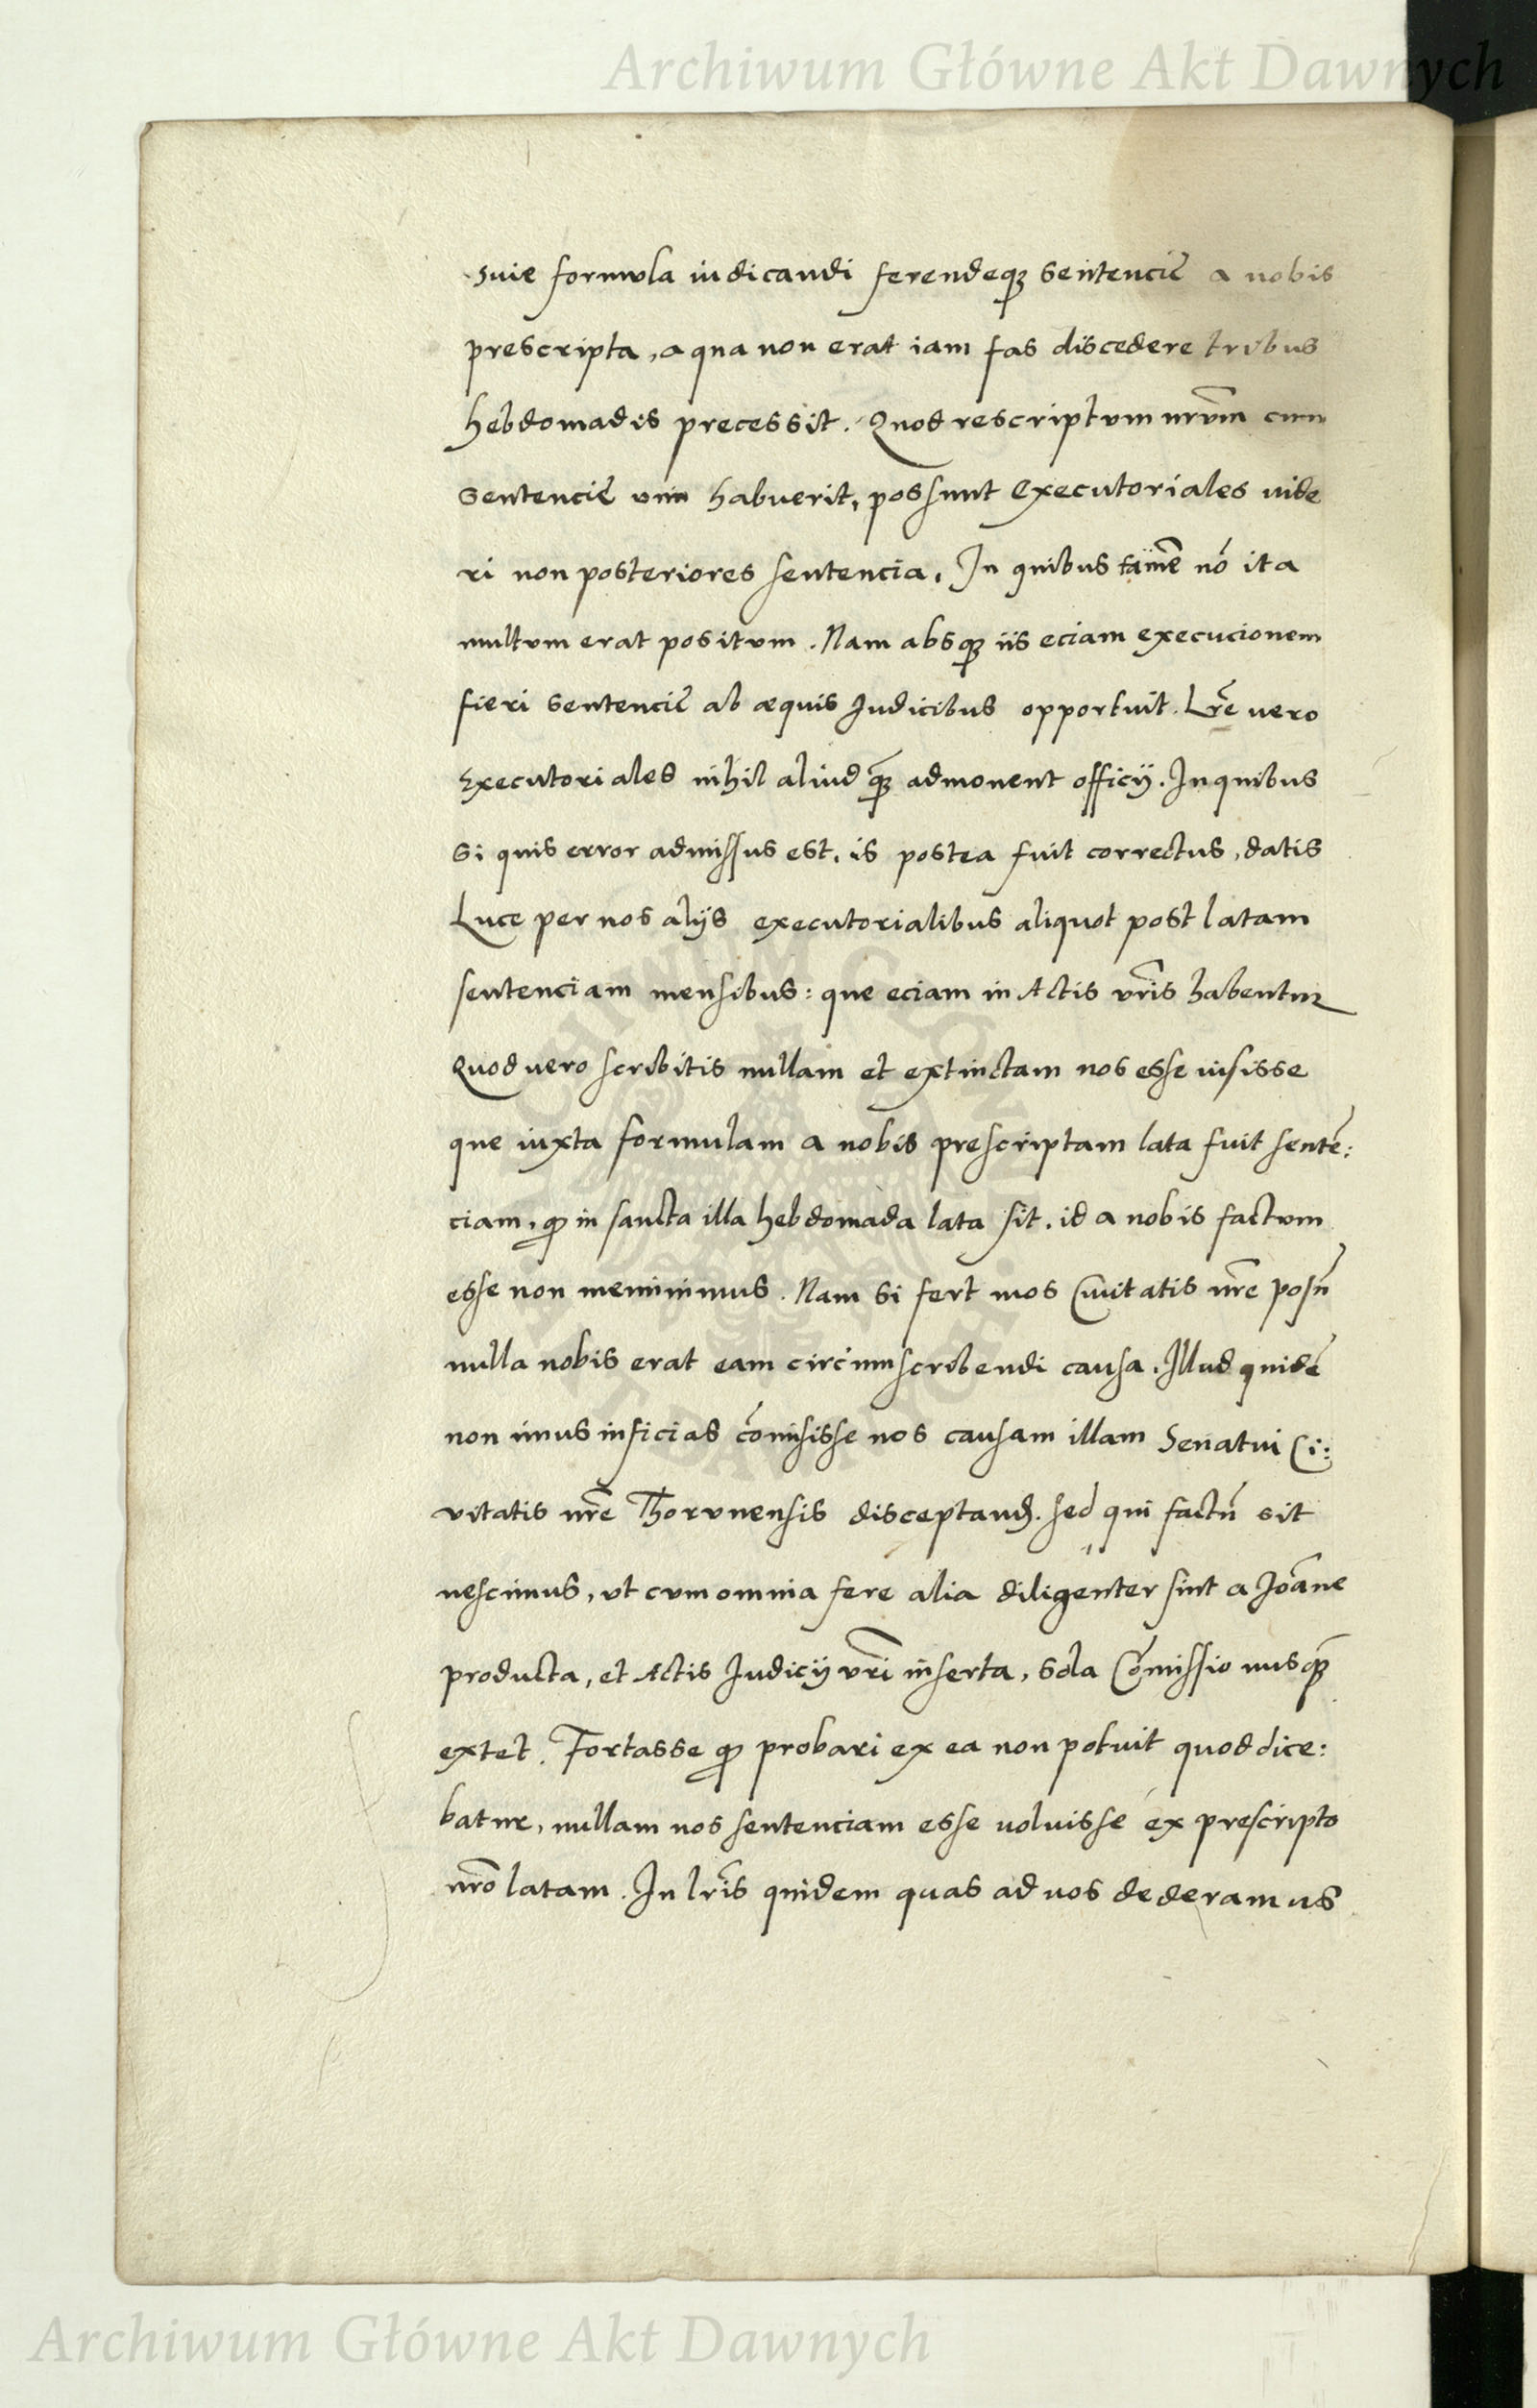 Archiwum Główne Akt Dawnych
suie formula iudicandi ferendeqꝫ sentencie̅ a nobis
prescripta, a qua non erat iam fas discedere tribus
hebdomadis precessit. Quod rescriptum nr̅vm cum
Sentencie̅ vim habuerit, possunt Executoriales vide
ri non posteriores sentencia. In quibus tame̅ no̅ ita
multum erat positum. Nam absqꝫ iis eciam execucionem
fieri sentencie̅ ab æquis Judicibus opportuit. Lr̅e vero
Executoriales nihil aliud qꝫ̅ admonent officij. In quibus
Si quis error admissus est, is postea fuit correctus, datis
Luce per nos alijs executorialibus aliquot post latam
sentenciam mensibus: que eciam in Actis vr̅is habentur
Quod vero scribitis nullam et extinctam nos esse iusisse
que iuxta formulam a nobis prescriptam lata fuit sente̅:
ciam, ꝙ in sancta illa hebdomada lata sit, id a nobis factum
esse non meminimus. Nam si fert mos Civitatis nr̅e posn̅
nulla nobis erat eam circumscribendi causa. Illud quide̅
non imus inficias co̅misisse nos causam illam Senatui Ci:
vitatis nr̅e Thorunensis disceptand. sed qui factu̅ sit
nescimus, ut cum omnia fere alia diligenter sint a Joa̅ne
producta, et Actis Judicij vr̅i inserta, sola Co̅missio nusqꝫ̅
extet. Fortasse ꝙ probari ex ea non potuit quod dice:
batur, nullam nos sentenciam esse voluisse ex prescripto
nr̅o latam. In lr̅is quidem quas ad vos dederamus
Archiwum Główne Akt Dawnych